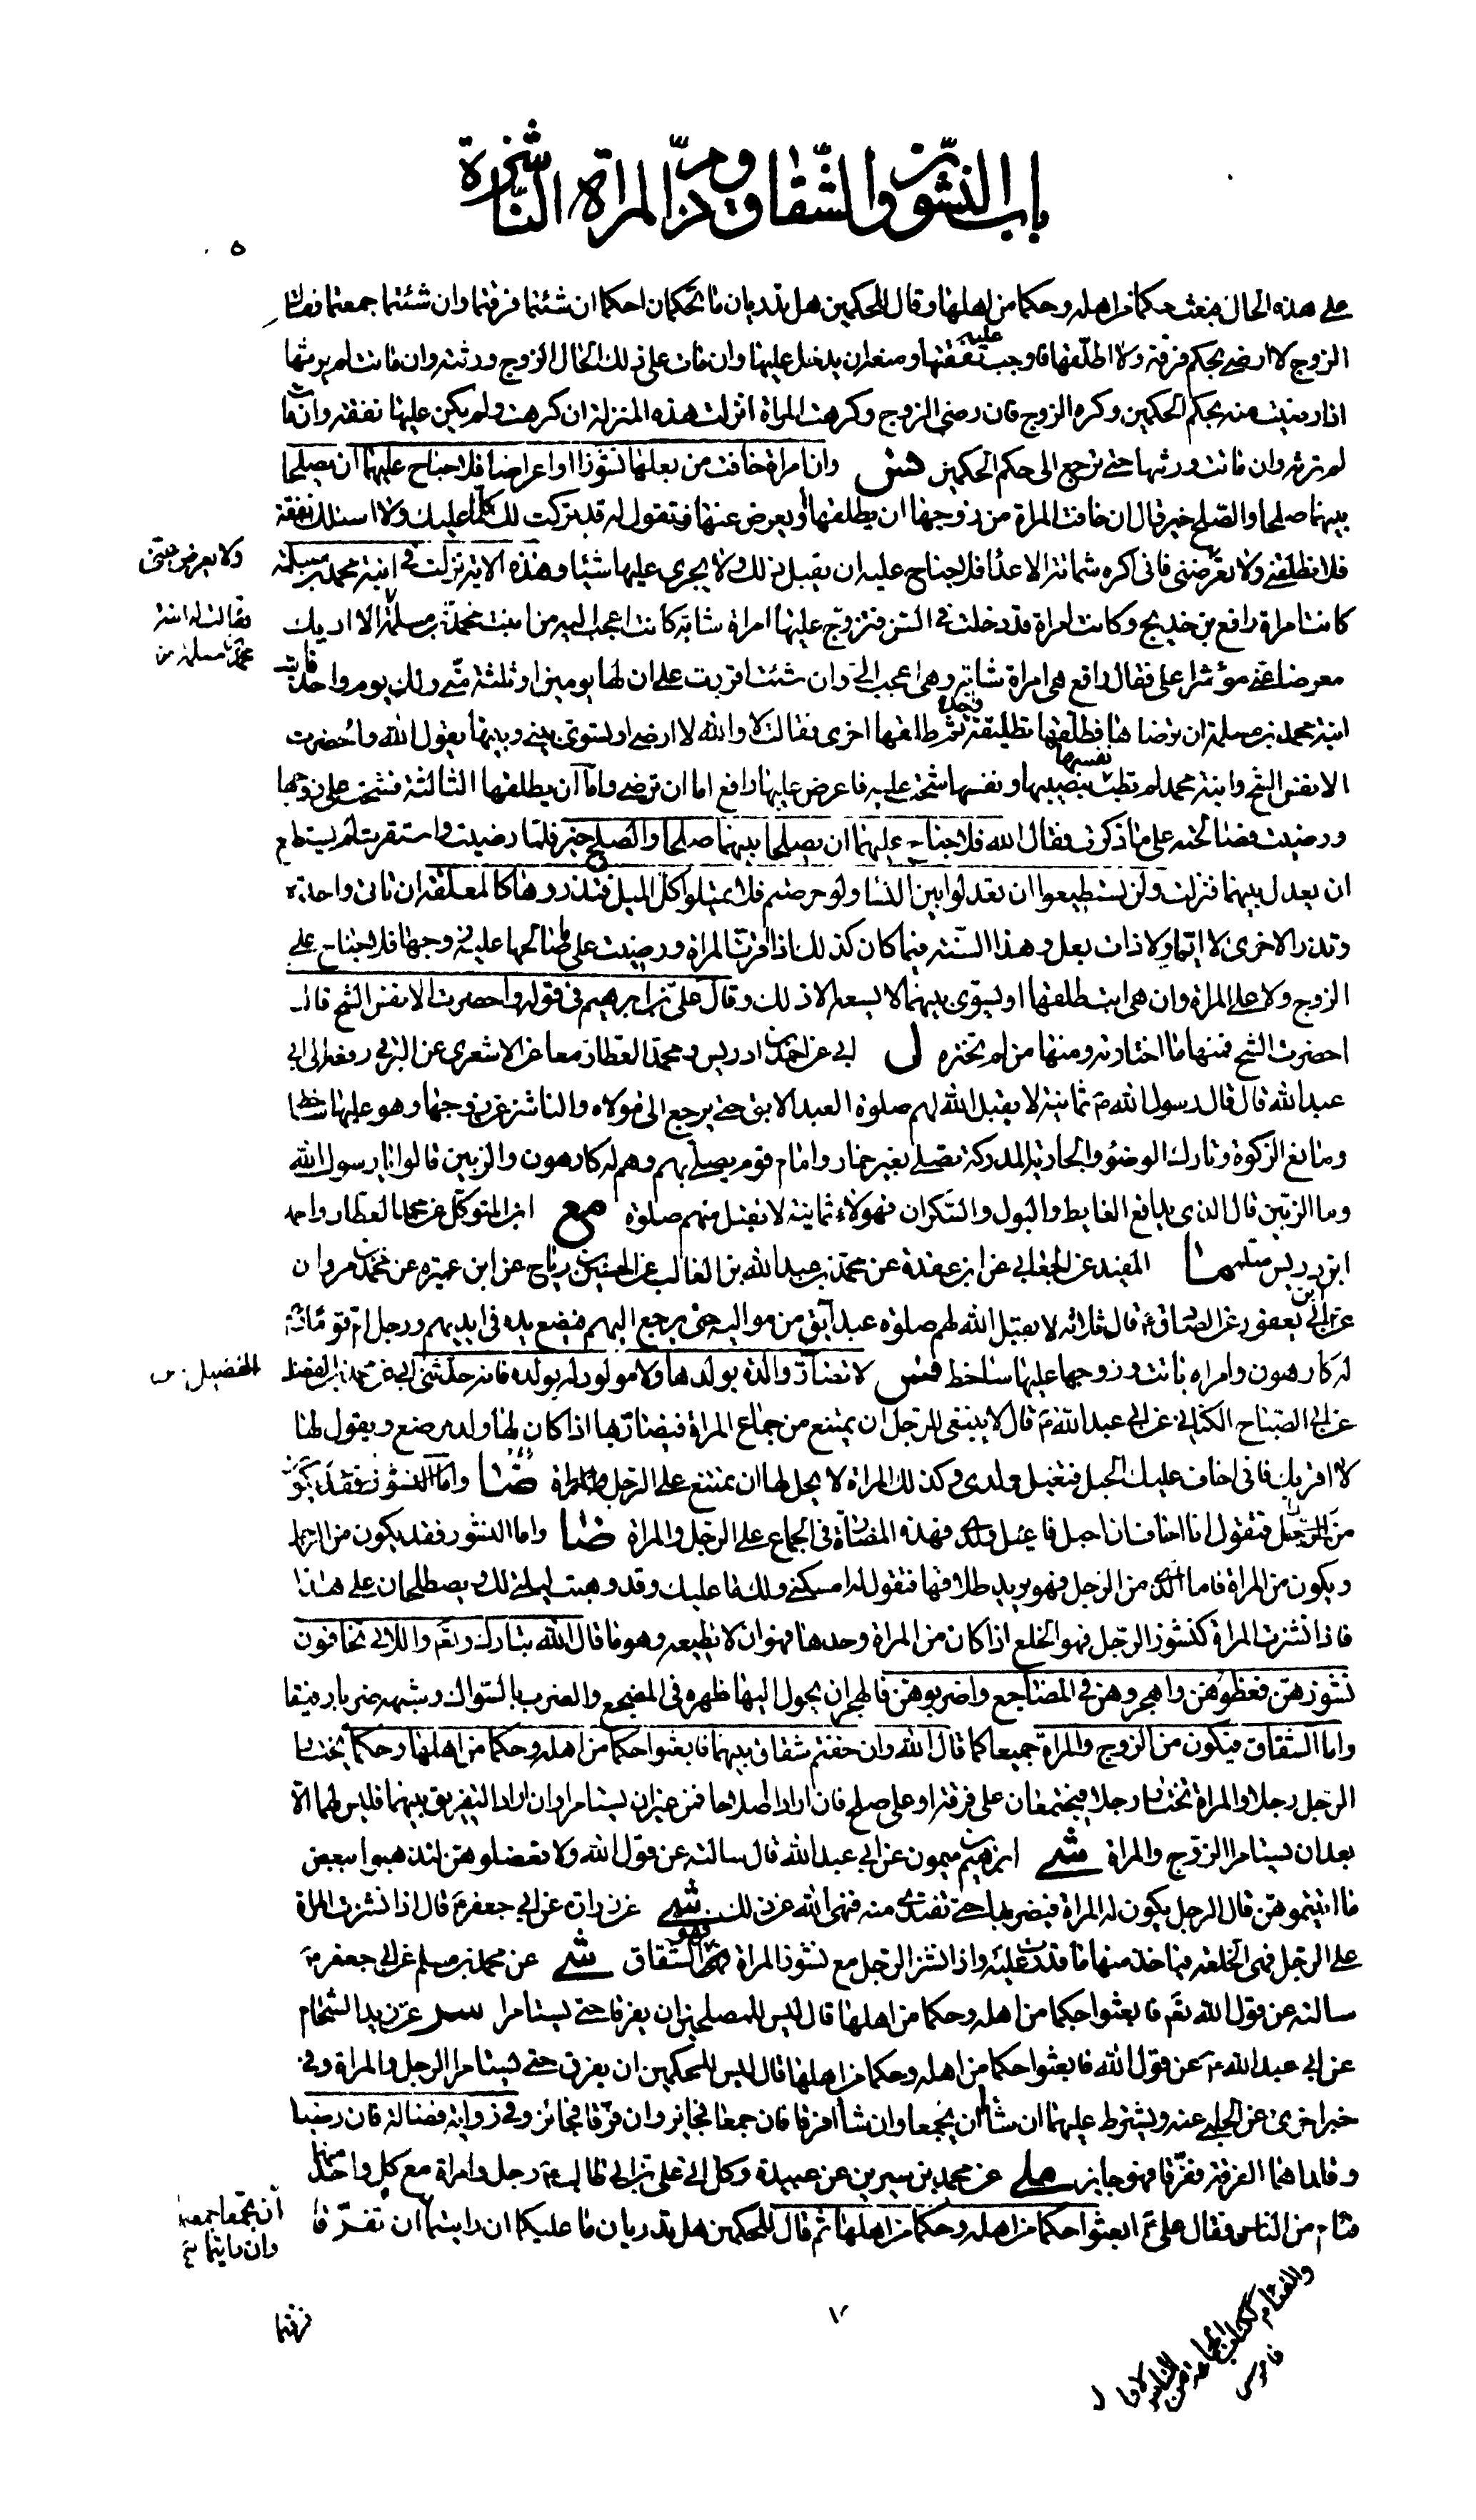 باب النشوز والشقاق وذم المراة الناشزة
على هذه الحال فبعث حكما من اهله وحكما من اهلها وقال للحكمين هل تدريان ما تحكمان احكما ان شئتما فرقتما وان شئتما جمعتما فقال
الزوج لا ارضى بحكم فرقة ولا اطلقها فاوجب عليه نفقتها ومنعه ان يدخل عليها وان مات على ذلك الحال الزوج ورثته وان ماتت لم يرثها
اذا رضيت منه بحكم الحكمين وكره الزوج فان رضى الزوج وكرهت المراة انزلت هذه المنزلة ان كرهت ولم يكن عليها نفقة وان مات
لم ترثه وان ماتت ورثها حتى ترجع الى حكم الحكمين فس وان امراة خافت من بعلها نشوزا او اعراضا فلا جناح عليهما ان يصلحا
بينهما صلحا والصلح خير قال ان خافت المراة من زوجها ان يطلقها او يعرض عنها فتقول له قد تركت لك كلما عليك ولا اسئلك نفقة
فلا تطلقنى ولا تعرض عنى فانى اكره شماتة الاعداء فلا جناح عليه ان يقبل ذلك ولا يجرى عليها شيئا وهذه الاية نزلت فى ابنة محمد بن مسلمة
كانت امراة رافع بن خديج وكانت امراة قد دخلت فى السن فتزوج عليها امراة شابة كانت اعجب اليه من ابنت محمد بن مسلمة الا اريك
معرضا عنى مؤثرا على فقال رافع هى امراة شابة وهى اعجب الى وان شئت اقررت على ان لها يومين او ثلثة منى ولك يوم واحد فابت
ابنة محمد بن مسلمة ان ترضاها فطلقها تطليقة واحدة ثم طلقها اخرى فقالت لا والله لا ارضى او تسوى بينى وبينها يقول الله واحضرت
الانفس الشح وابنة محمد لم تطب نفسها بنصيبها ونفسها شحت عليه فاعرض عليها رافع اما ان ترضى واما ان يطلقها الثالثة فشحت على زوجها
ورضيت فصالحته على ما ذكرت فقال الله فلا جناح عليهما ان يصلحا بينهما صلحا والصلح خير فلما رضيت واستقرت لم يستطع
ان يعدل بينهما فنزلت ولن تستطيعوا ان تعدلوا بين النساء ولو حرصتم فلا تميلوا كل الميل فتذروها كالمعلقة ان تاتى واحدة
وتذر الاخرى لا ايما ولا ذات بعل وهذا السنة فيما كان كذلك اذا اقرت المراة ورضيت على ما صالحها عليه زوجها فلا جناح على
الزوج ولا على المراة وان هى ابت طلقها او يسوى بينهما لا يسعه الا ذلك وقال على بن ابرهيم فى قوله واحضرت الانفس الشح قال
احضرت الشح فمنها ما اختارته ومنها من لم تختره ل ابى عن احمد بن ادريس ومحمد العطار معا عن الاشعرى عن البرقى رفعه الى ابى
عبدالله قال قال رسول الله ص ثمانية لا يقبل الله لهم صلوة العبد الابق حتى يرجع الى مولاه والناشز عن زوجها وهو عليها ساخط
ومانع الزكوة وتارك الوضوء والجارية المدركة تصلى بغير خمار وامام قوم يصلى بهم وهم له كارهون والزبين قالوا يا رسول الله
وما الزبين قال الذى يدافع الغايط والبول والسكران فهولاء ثمانية لا تقبل منهم صلوة مع ابن المتوكل عن محمد العطار واحمد
ابن ادريس مثله ما المفيد عن الجعابى عن ابن عقدة عن محمد بن عبدالله بن الغالب عن الحسين بن رباح عن ابن عميرة عن محمد بن مروان
عن ابن ابى يعفور عن الصادق ع قال ثلثة لا يقبل الله لهم صلوة عبد ابق من مواليه حتى يرجع اليهم فيضع يده فى ايديهم ورجل ام قوما وهم
له كارهون وامراة باتت وزوجها عليها ساخط فس لا تضار والدة بولدها ولا مولود له بولده فانه حدثنى ابى عن محمد بن الفضل
عن ابى الصباح الكنانى عن ابى عبدالله ع قال لا ينبغى للرجل ان يمتنع من جماع المراة فيضار بها اذا كان لها ولد مرضع ويقول لها
لا اقربك فانى اخاف عليك الحبل فتغيل ولدى وكذلك المراة لا يحل لها ان تمتنع على الرجل
فتقول انا اخاف ان احبل فاغيل ولدى فهذه المضارة فى الجماع على الرجل والمراة ضا واما النشوز فقد يكون من الرجل
ويكون من المراة فاما الذى من الرجل فهو يريد طلاقها فتقول له امسكنى ولك ما عليك وقد وهبت ليلتى لك ويصطلحان على هذا
فاذا نشزت المراة كنشوز الرجل فهو الخلع اذا كان من المراة وحدها فهو ان لا تطيعه وهو ما قال الله تبارك وتعالى واللاتى تخافون
نشوزهن فعظوهن واهجروهن فى المضاجع واضربوهن فالهجران يحول اليها ظهره فى المضجع والضرب بالسواك وشبهه ضربا رفيقا
واما الشقاق فيكون من الزوج والمراة جميعا كما قال الله وان خفتم شقاق بينهما فابعثوا حكما من اهله وحكما من اهلها يختار
الرجل رجلا والمراة تختار رجلا فيجتمعان على فرقة او على صلح فان ارادا اصلاحا فمن غير ان يستامرا وان ارادا التفريق بينهما فليس لهما الا
بعد ان يستامرا الزوج والمراة شى ابرهيم بن ميمون عن ابى عبدالله قال سالته عن قول الله ولا تعضلوهن لتذهبوا ببعض
ما اتيتموهن قال الرجل يكون له المراة فيضربها حتى تفتدى منه فنهى الله عن ذلك شى عن زرارة عن ابى جعفر ع قال اذا نشزت المراة
على الرجل فهى الخلعة فياخذ منها ما قدرت عليه واذا نشز الرجل مع نشوز المراة فهو الشقاق شى عن محمد بن مسلم عن ابى جعفر ع
سالته عن قول الله تعالى فابعثوا حكما من اهله وحكما من اهلها قال ليس للمصلحين ان يفرقا حتى يستامرا عن زيد الشحام
عن ابى عبدالله ع عن قول الله فابعثوا حكما من اهله وحكما من اهلها قال ليس للحكمين ان يفرقا حتى يستامرا الرجل والمراة وفى
خبر اخرى عن الحلبى عنه ويشترط عليهما ان شاءا ان يجمعا وان شاءا فرقا فان جمعا فجائز وان فرقا فجائز وفى رواية فضالة فان رضيا
وقلداهما الفرقة ففرقا فهو جايز عن محمد بن سيرين عن عبيدة وكان اتى على بن ابى طالب ع رجل وامراة مع كل واحد منهما
فئام من الناس فقال على ع ابعثوا حكما من اهله وحكما من اهلها ثم قال للحكمين هل تدريان ما عليكما ان رايتما ان تفرقا
ولا يعرض
فقالت له ابنة
محمد بن مسلمة
الفضيل
ان تجمعا جمعتما
وان رايتما
فرقتما
٧